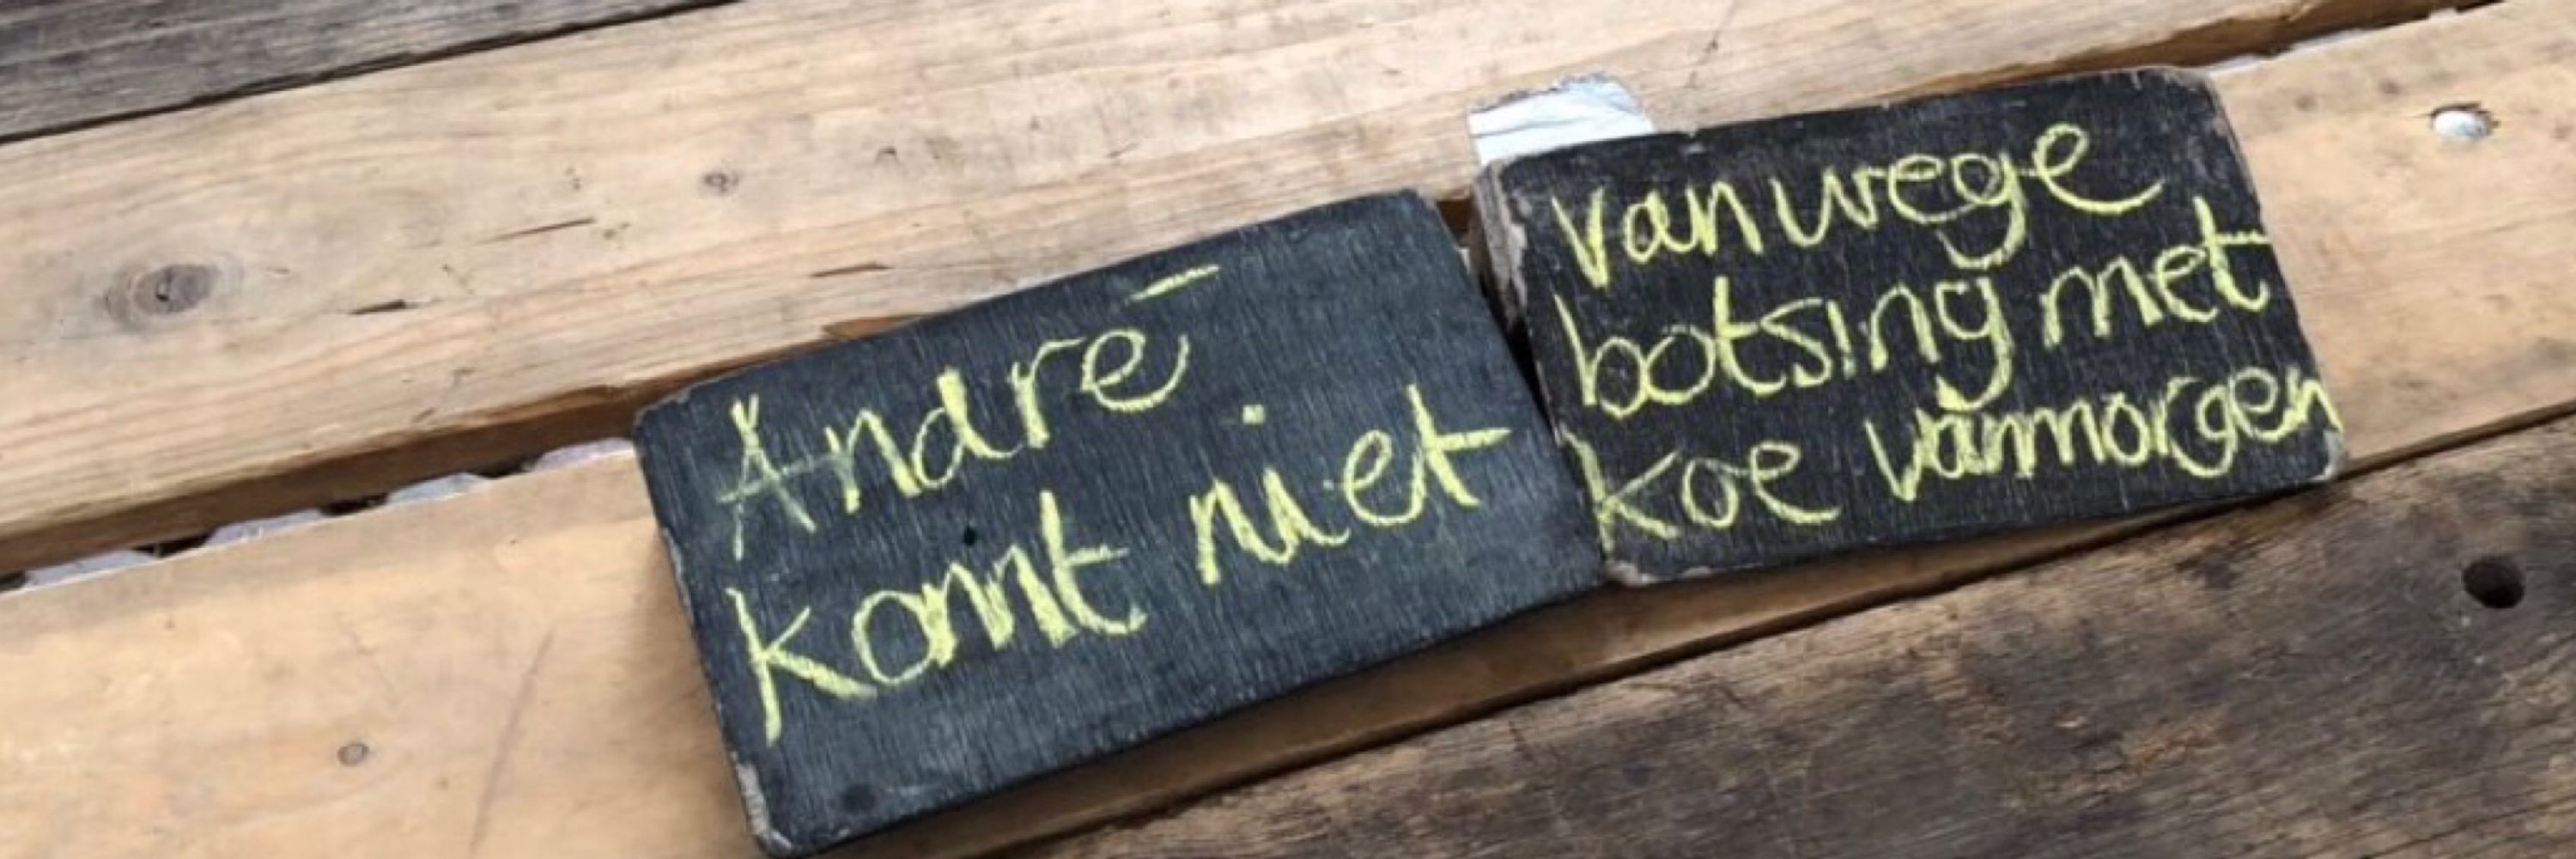 André
komt niet
vanwege
botsing met
koe vanmorgen